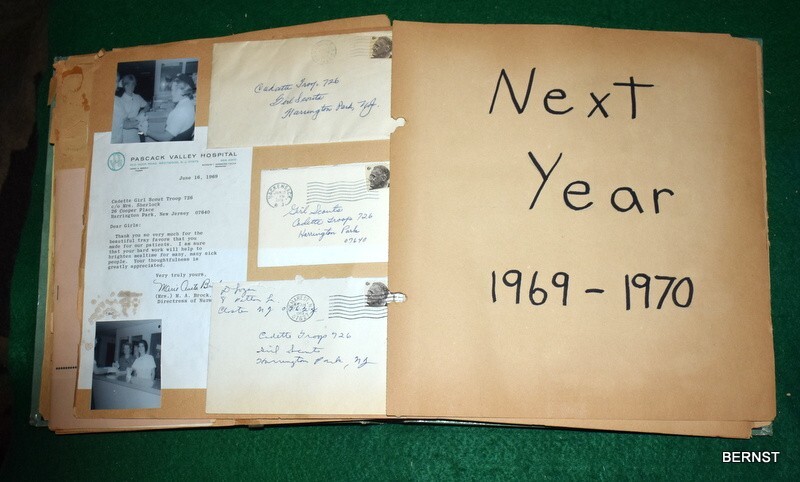 PASCACK VALLEY HOSPITAL
June 16, 1969
Cadette Girl Scout Troop 726
c/o Mrs. Sherlock
26 Cooper Place
Harrington Park, New Jersey 07640
Dear Girls:
Thank you so very much for the
beautiful tray favors that you
made for our patients. I am sure
that your hard work will help to
brighten mealtime for many, many sick
people. Your thoughtfulness is
greatly appreciated.
Very truly yours,
(Mrs.) M. A. Brock,
Directress of Nurs
Cadette Troop 726
Girl Scouts
Harrington Park, N.J.
Girl Scouts
Cadette Troop 726
Harrington Park
07640
Closter N.J.
Cadette Troop 726
Girl Scouts
Harrington Park, NJ
Next
Year
1969 - 1970
BERNST